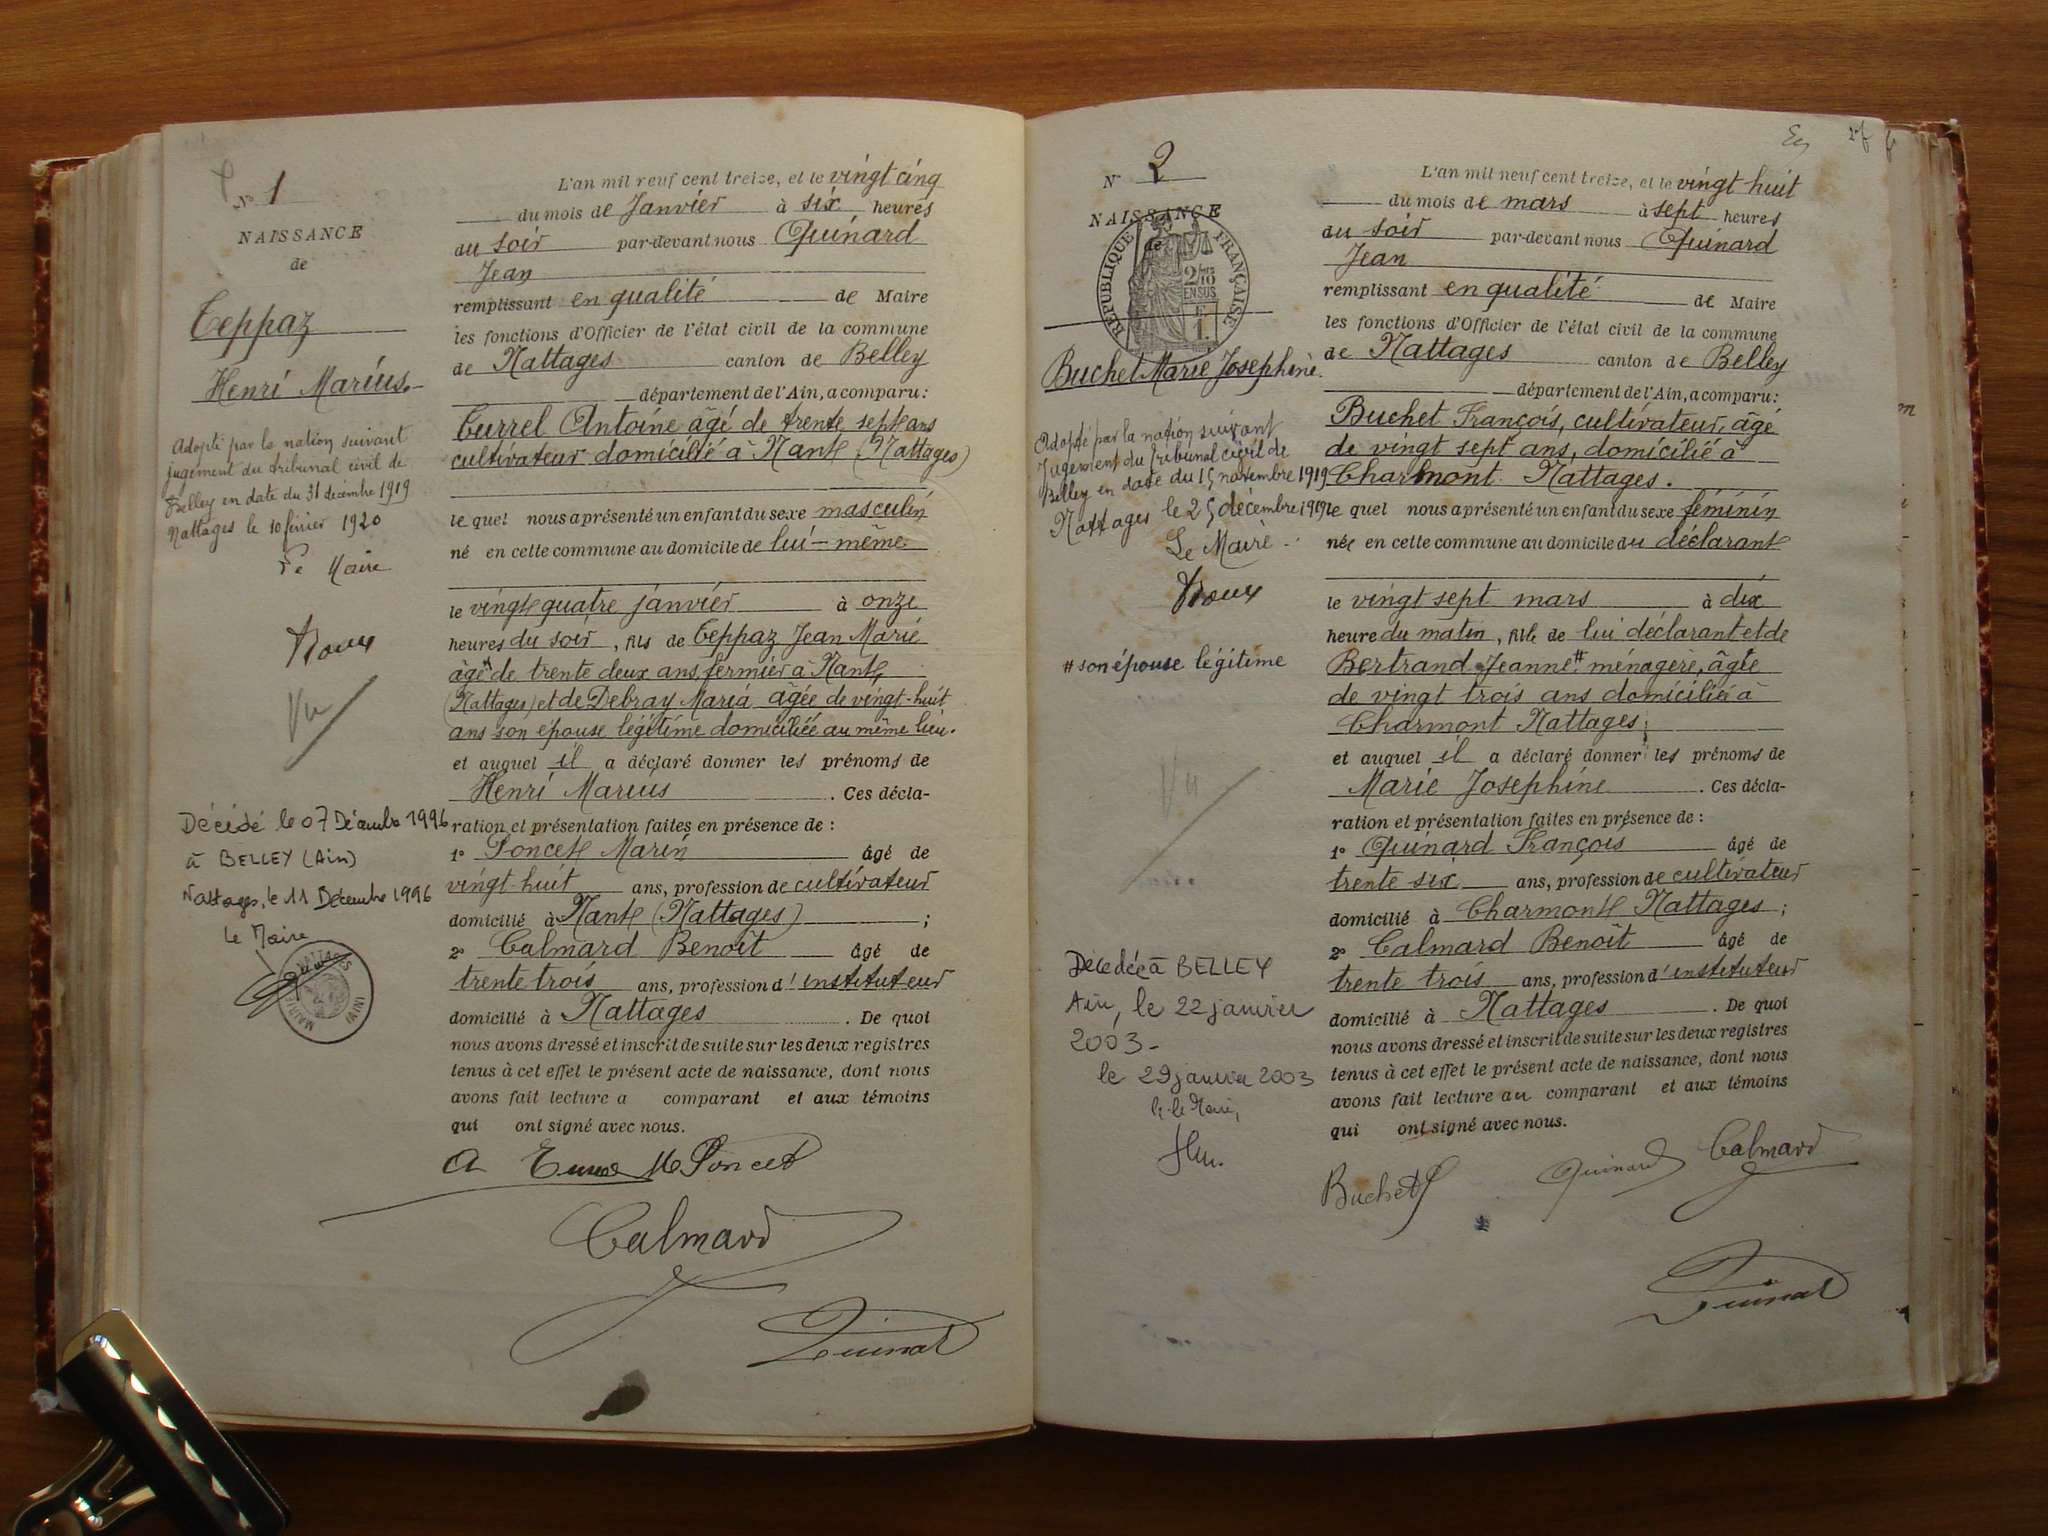 N° 1
NAISSANCE
de
Teppaz
Henri Marius
Adopté par la nation suivant
jugement du tribunal civil de
Belley en date du 31 décembre 1919
Nattages le 10 février 1920
Le Maire
Roux
Vu
Décédé le 07 Décembre 1996
à BELLEY (Ain)
Nattages, le 11 Décembre 1996
le Maire
MAIRIE
NATTAGES
(AIN)
L'an mil neuf cent treize, et le vingt cinq
du mois de Janvier à six heures
du soir par-devant nous Quinard
Jean
remplissant en qualité de Maire
les fonctions d'Officier de l'état civil de la commune
de Nattages canton de Belley
département de l'Ain, a comparu :
Curret Antoine âgé de trente sept ans
cultivateur domicilié à Nant (Nattages)
le quel nous a présenté un enfant du sexe masculin
né en cette commune au domicile de lui-même
le vingt quatre janvier à onze
heures du soir, fils de Teppaz Jean Marie
âgé de trente deux ans fermier à Nant
(Nattages) et de Debray Maria âgée de vingt-huit
ans son épouse légitime domiciliée au même lieu.
et auquel il a déclaré donner les prénoms de
Henri Marius. Ces décla-
ration et présentation faites en présence de :
1° Poncet Marin âgé de
vingt-huit ans, profession de cultivateur
domicilié à Nant (Nattages) ;
2° Calmard Benoît âgé de
trente trois ans, profession d'instituteur
domicilié à Nattages. De quoi
nous avons dressé et inscrit de suite sur les deux registres
tenus à cet effet le présent acte de naissance, dont nous
avons fait lecture a comparant et aux témoins
qui ont signé avec nous.
M Poncet
Calmard
Quinard
N° 2
NAISSANCE
de
RÉPUBLIQUE FRANÇAISE
2/10
EN SUS
Buchet Marie Josephine.
Adopté par la nation suivant
Jugement du Tribunal civil de
Belley en date du 15 novembre 1919
Nattages le 25 décembre 1919
Le Maire
Roux
# son épouse légitime
Vu
Décédée à BELLEY
Ain, le 22 janvier
2003-
le 29 janvier 2003
L'an mil neuf cent treize, et le vingt huit
du mois de mars à sept heures
du soir par-devant nous Quinard
Jean
remplissant en qualité de Maire
les fonctions d'Officier de l'état civil de la commune
de Nattages canton de Belley
département de l'Ain, a comparu :
Buchet François, cultivateur, âgé
de vingt sept ans, domicilié à
Charmont Nattages.
le quel nous a présenté un enfant du sexe féminin
née en cette commune au domicile du déclarant
le vingt sept mars à dix
heure du matin, fille de lui déclarant et de
Bertrand Jeanne # ménagère, âgée
de vingt trois ans domiciliée à
Charmont Nattages
et auquel il a déclaré donner les prénoms de
Marie Josephine. Ces décla-
ration et présentation faites en présence de :
1° Quinard François âgé de
trente six ans, profession de cultivateur
domicilié à Charmont Nattages ;
2° Calmard Benoît âgé de
trente trois ans, profession d'instituteur
domicilié à Nattages. De quoi
nous avons dressé et inscrit de suite sur les deux registres
tenus à cet effet le présent acte de naissance, dont nous
avons fait lecture au comparant et aux témoins
qui ont signé avec nous.
Buchet Quinard Calmard
Quinard